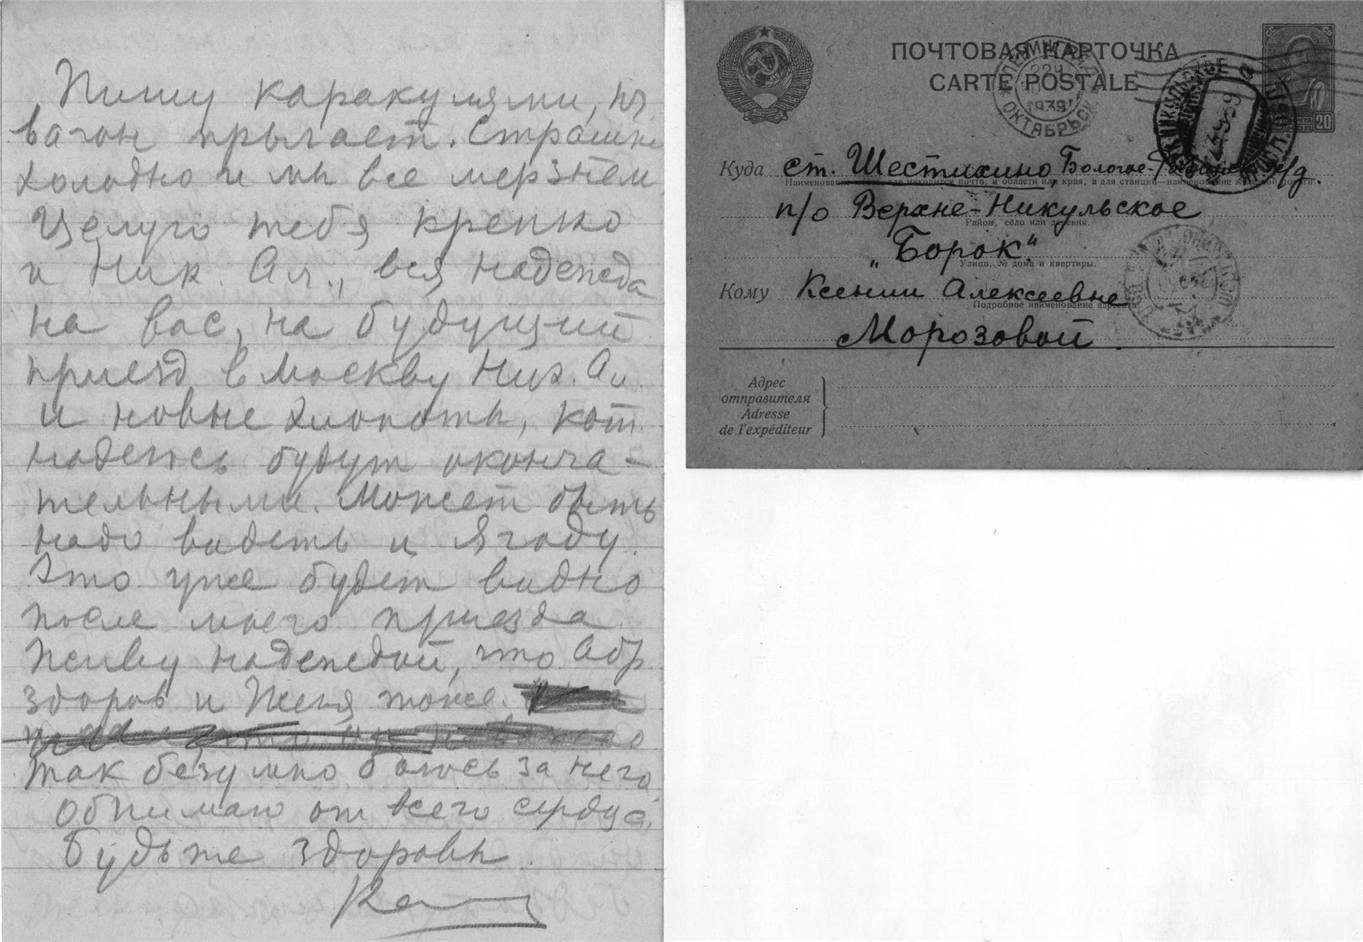 Пишу каракулями, пч.
вагон прыгает. Страшно
холодно и мы все мерзнем
Целую тебя крепко
и Ник. Ал., вся надежда
на вас, на будущий
приезд в Москву Ник. Ал.
и новые хлопоты, кот.
надеюсь будут оконча-
тельными. Может быть
надо видеть и Ягоду.
Это уже будет видно
после моего приезда
Живу надеждой, что Абр.
здоров и Женя тоже.
так безумно боюсь за него
Обнимаю от всего сердца.
Будьте здоровы.
ПОЧТОВАЯ КАРТОЧКА
CARTE POSTALE
1939
ОКТЯБРЬСК
20
Куда ст. Шестихино Бологое- ж/д.
п/о Верхне-Никульское
Район, село или деревня.
„Борок“
Улица, № дома и квартиры.
Кому Ксении Алексеевне
Подробное наименование адресата
Морозовой
Адрес
отправителя
Adresse
de l'expéditeur